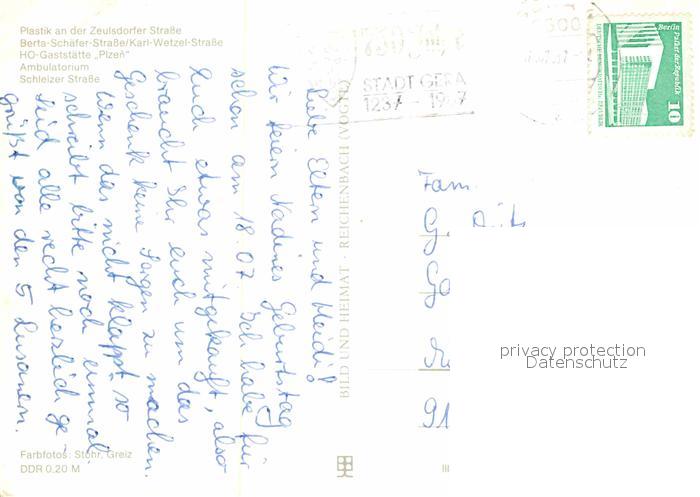 Plastik an der Zeulsdorfer Straße
Berta-Schäfer-Straße/Karl-Wetzel-Straße
HO-Gaststätte „Plzeň"
Ambulatorium
Schleizer Straße
STADT GERA
1237 - 1987
Berlin Palast der Republik
10
Liebe Eltern und Heidi!
Wir feiern Nadines Geburtstag
schon am 18.07. Ich habe für
Euch etwas mitgekauft, also
braucht Ihr euch um das
Geschenk keine Sorgen zu machen.
Wenn das nicht klappt, so
schreibt bitte noch einmal.
Seid alle recht herzlich ge-
grüßt von den 5
BILD UND HEIMAT · REICHENBACH (VOGTL)
Fam.
91
privacy protection
Datenschutz
Farbfotos: Stöhr, Greiz
DDR 0,20 M
III